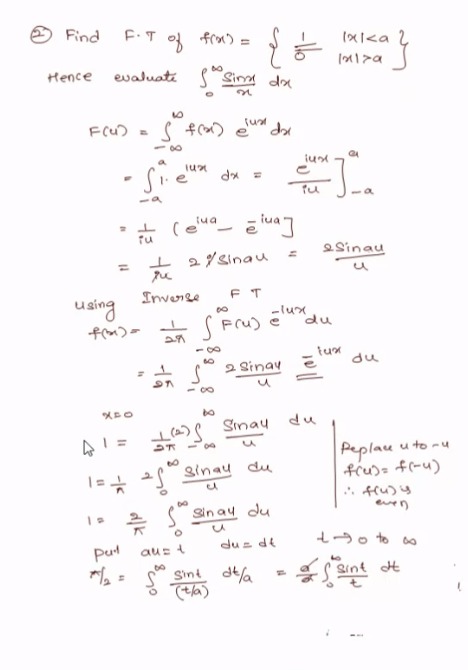 ② Find F.T of f(x) = { 1 |x|<a
0 |x|>a }
Hence evaluate ∫₀^∞ Sinx/x dx
F(u) = ∫_{-∞}^{∞} f(x) e^{iux} dx
= ∫_{-a}^{a} 1. e^{iux} dx = e^{iux}/iu ]_{-a}^{a}
= 1/iu (e^{iua} - e^{-iua}]
= 1/iu 2i Sinau = 2Sinau/u
using Inverse F T
f(x) = 1/2π ∫_{-∞}^{∞} F(u) e^{-iux} du
= 1/2π ∫_{-∞}^{∞} 2Sinau/u e^{-iux} du
x=0
1 = 1/2π (2) ∫_{-∞}^{∞} Sinau/u du
1 = 1/π 2∫₀^∞ Sinau/u du
1 = 2/π ∫₀^∞ Sinau/u du
Replace u to -u
f(u) = f(-u)
∴ f(u) is
even
put au = t du = dt t → 0 to ∞
π/2 = ∫₀^∞ Sint/(t/a) dt/a = a/a ∫₀^∞ Sint/t dt